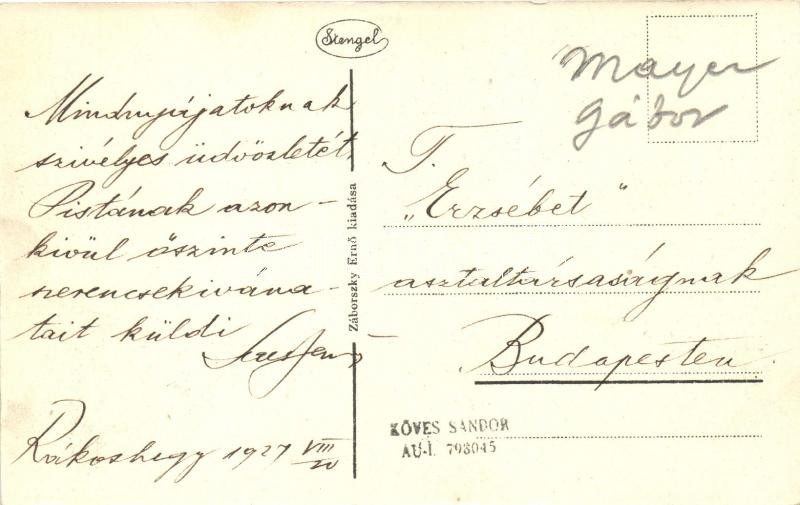 Stengel
Mayer
Gábor
Mindnyájatoknak
szivélyes üdvözletét,
Pistának azon-
kivül őszinte
szerencsekivána-
tait küldi
Rákoshegy 1927 VIII
Záborszky Ernő kiadása
T.
„Erzsébet"
asztaltársaságnak
Budapesten
KÖVES SÁNDOR
AU-I. 793045